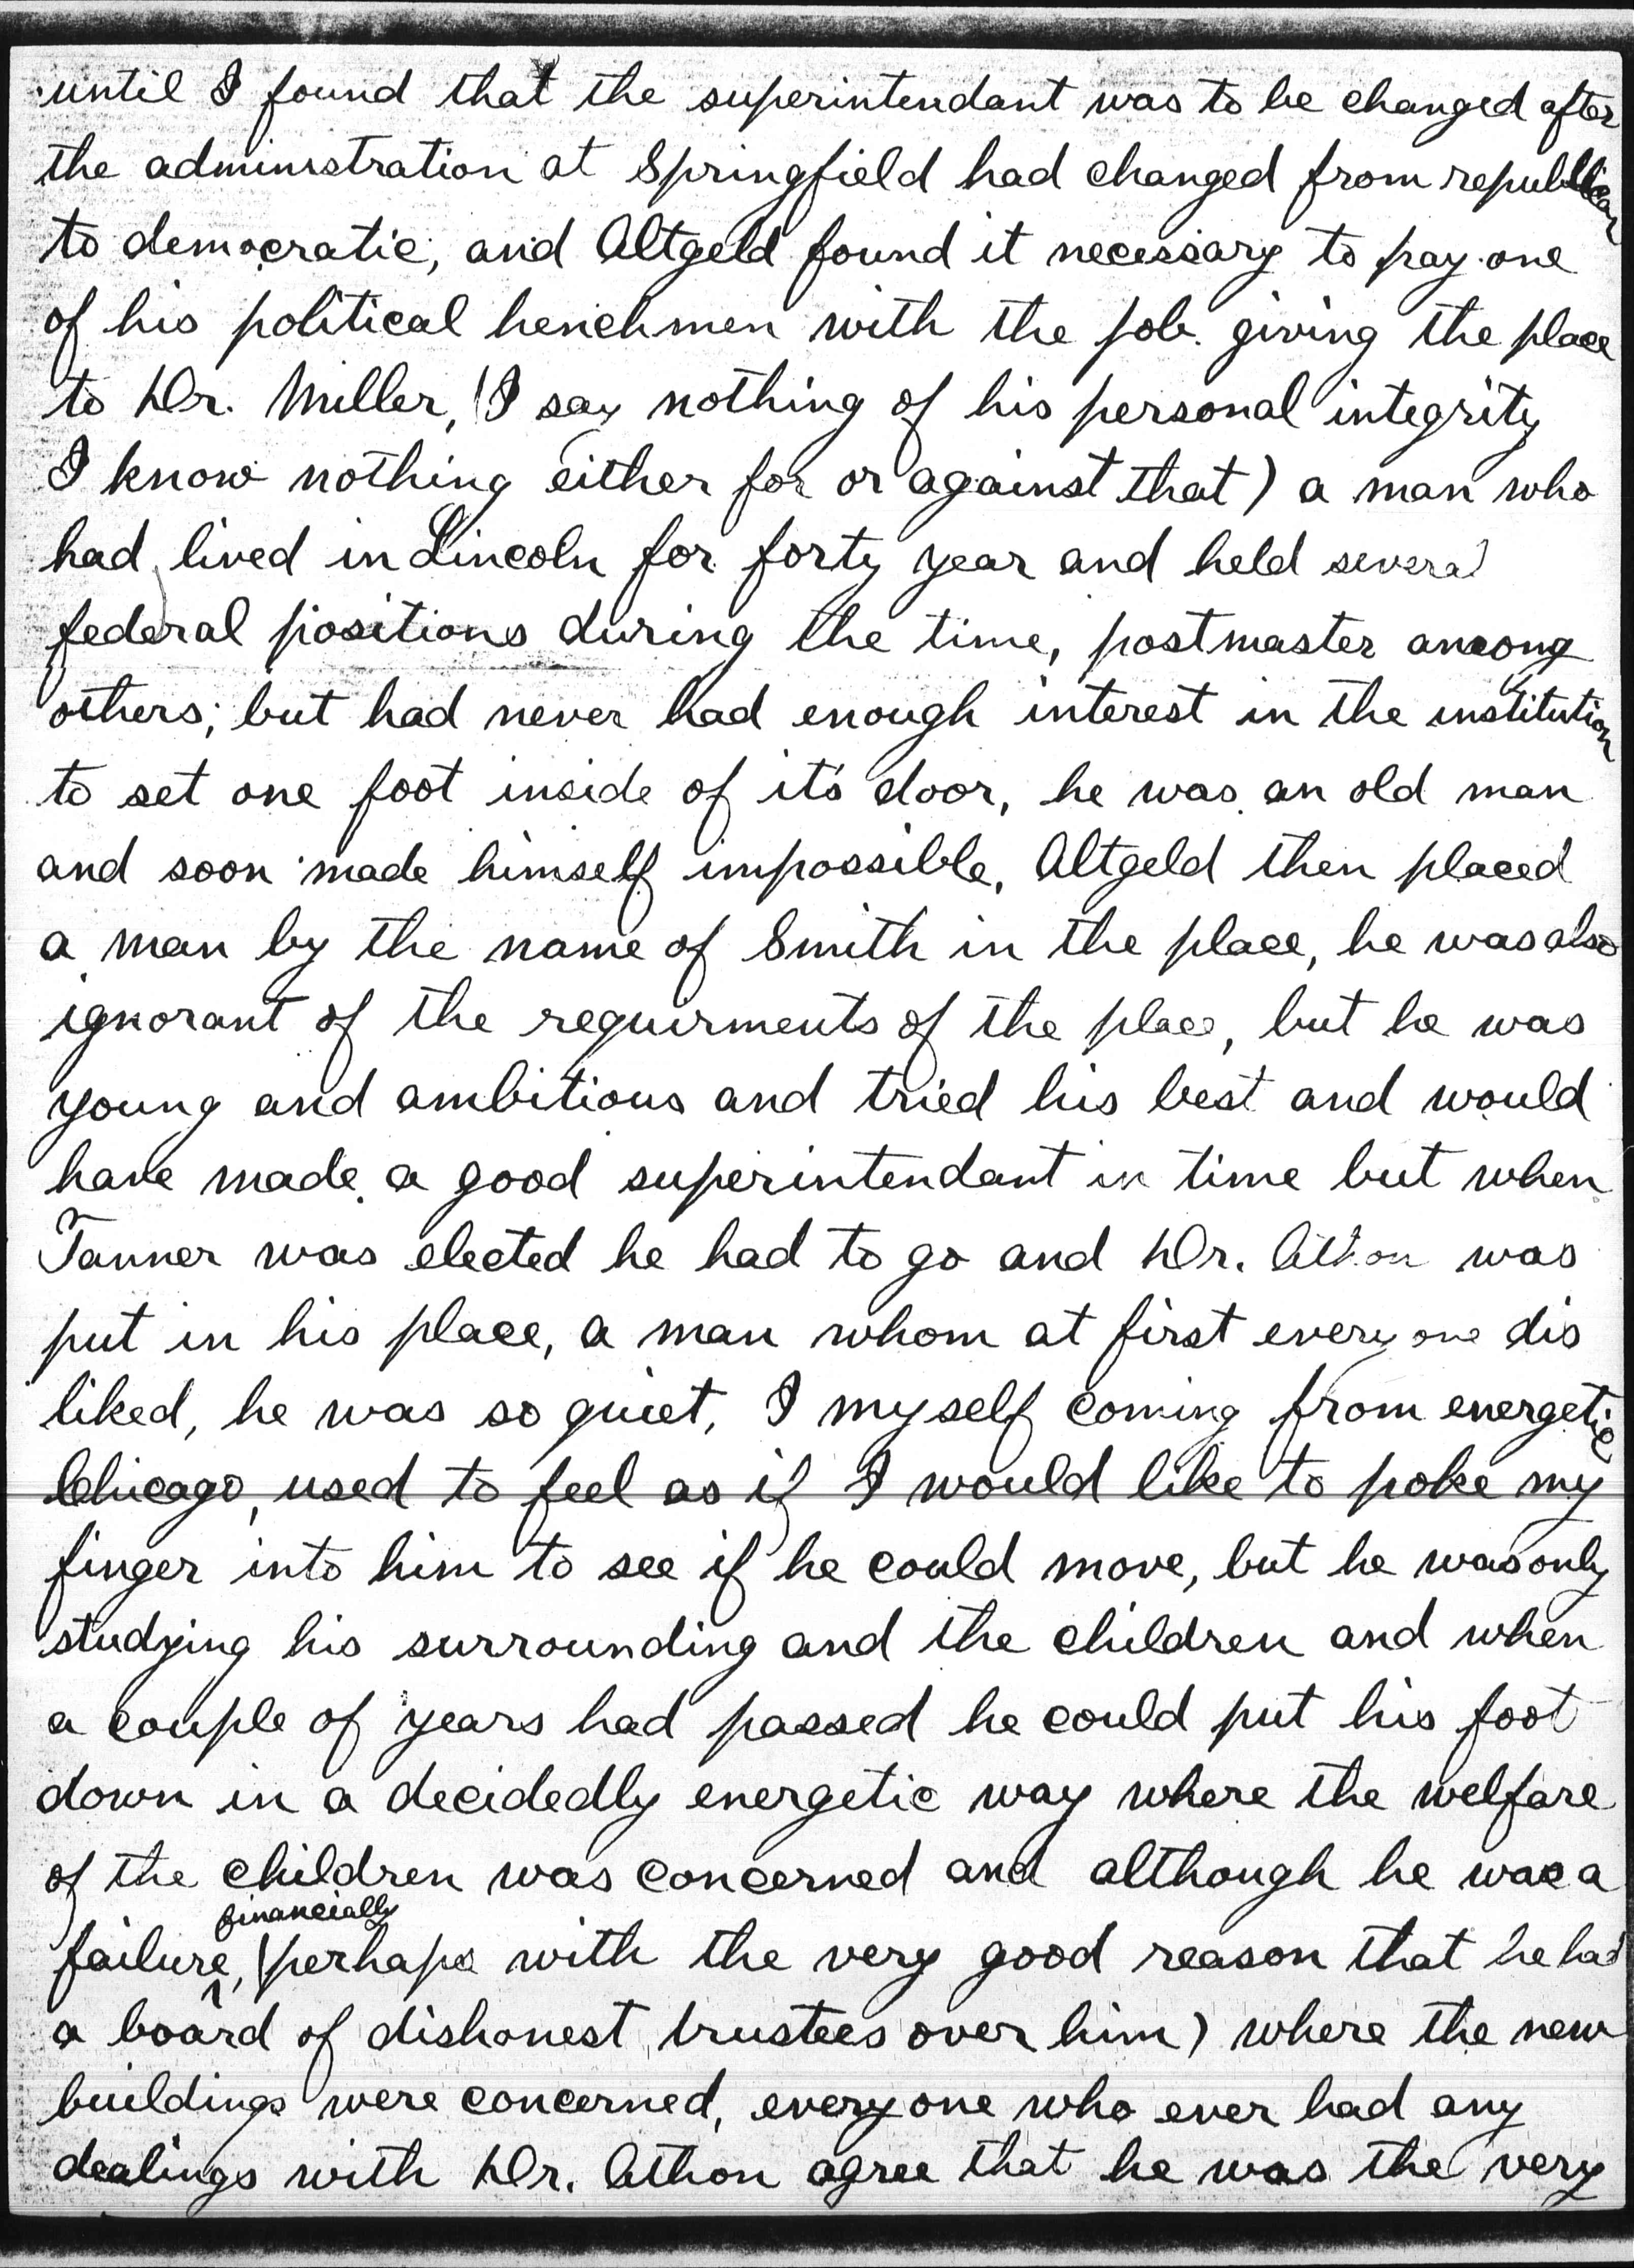 until I found that the superintendant was to be changed after
the adminstration at Springfield had changed from republican
to democratic, and Altgeld found it necessary to pay one
of his political henchmen with the job giving the place
to Dr. Miller, (I say nothing of his personal integrity
I know nothing either for or against that) a man who
had lived in Lincoln for forty year and held several
federal positions during the time, postmaster among
others; but had never had enough interest in the institution
to set one foot inside of it's door, he was an old man
and soon made himself impossible, Altgeld then placed
a man by the name of Smith in the place, he was also
ignorant of the requirments of the place, but he was
young and ambitious and tried his best and would
have made a good superintendant in time but when
Tanner was elected he had to go and Dr. Athon was
put in his place, a man whom at first every one dis
liked, he was so quiet, I myself coming from energetic
Chicago, used to feel as if I would like to poke my
finger into him to see if he could move, but he was only
studying his surrounding and the children and when
a couple of years had passed he could put his foot
down in a decidedly energetic way where the welfare
of the children was concerned and although he was a
failure financially, (perhaps with the very good reason that he had
a board of dishonest trustees over him) where the new
buildings were concerned, everyone who ever had any
dealings with Dr. Athon agree that he was the very